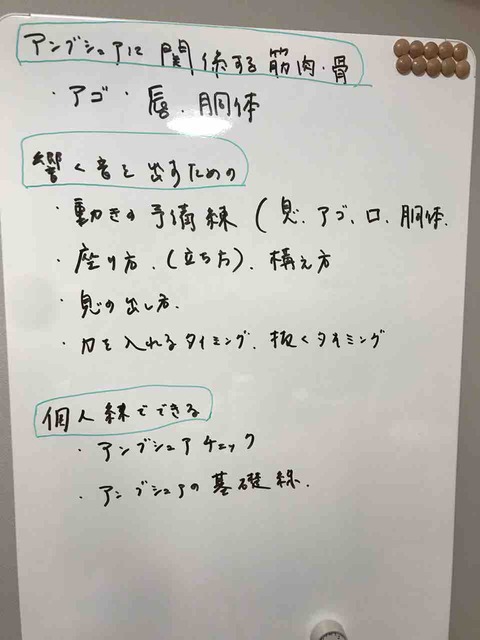 アンブシュアに関係する筋肉・骨
・アゴ・唇.胴体
響く音を出すための
・動きの予備練(息、アゴ、口、胴体.
・座り方.(立ち方).構え方
・息の出し方.
・力を入れるタイミング.抜くタイミング
個人練でできる
・アンブシュアチェック
・アンブシュアの基礎練.